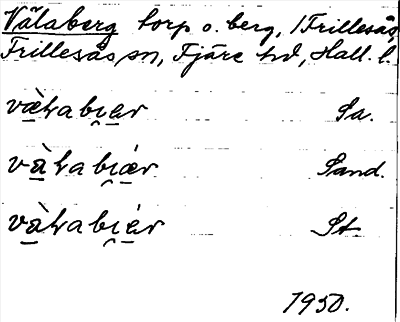 Välaberg torp o. berg, i Frillesås,
Frillesås sn, Fjäre hd, Hall. l.
væ̀ƚabi̯ær Sa.
và̱ƚabi̯á̱r Sand.
và̱ƚabi̯é̱r St.
1950.